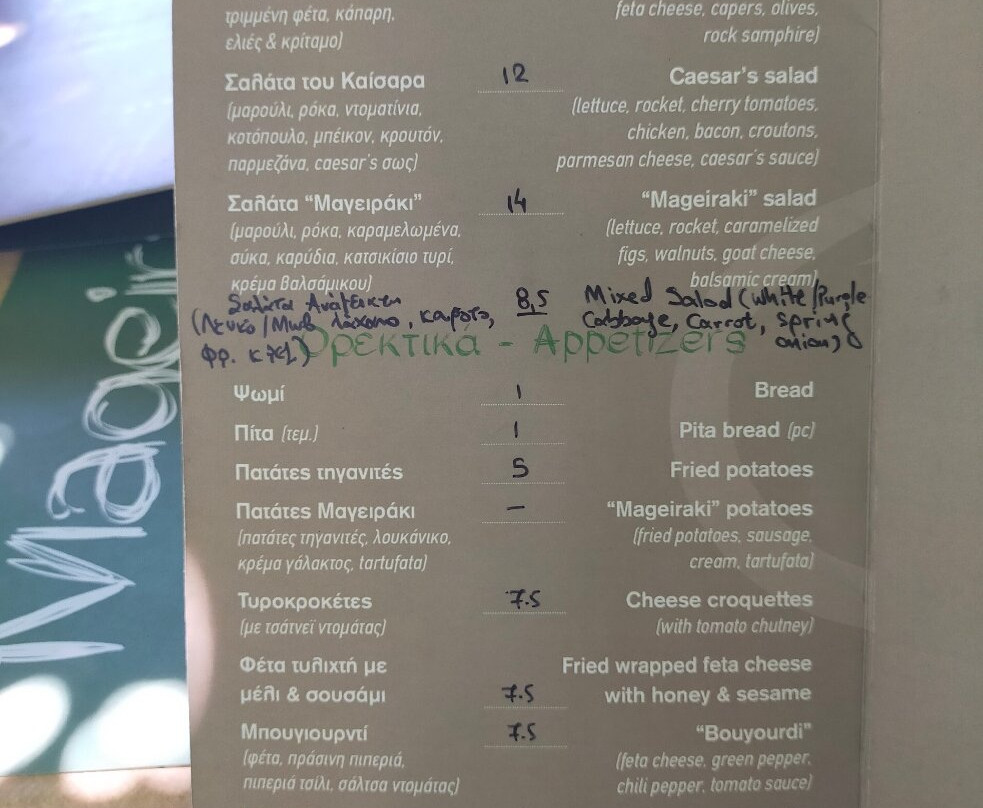 τριμμένη φέτα, κάπαρη, feta cheese, capers, olives,
ελιές & κρίταμο) rock samphire)
Σαλάτα του Καίσαρα 12 Caesar's salad
(μαρούλι, ρόκα, ντοματίνια, (lettuce, rocket, cherry tomatoes,
κοτόπουλο, μπέικον, κρουτόν, chicken, bacon, croutons,
παρμεζάνα, caesar's σως) parmesan cheese, caesar's sauce)
Σαλάτα "Μαγειράκι" 14 "Mageiraki" salad
(μαρούλι, ρόκα, καραμελωμένα, (lettuce, rocket, caramelized
σύκα, καρύδια, κατσικίσιο τυρί, figs, walnuts, goat cheese,
κρέμα βαλσάμικου) balsamic cream)
Σαλάτα Ανάμεικτη 8,5 Mixed Salad (White/Purple
(Λευκο/Μωβ λάχανο, καροτο, Cabbage, Carrot, Spring
φρ. κ onion)
Ορεκτικά - Appetizers
Ψωμί 1 Bread
Πίτα (τεμ.) 1 Pita bread (pc)
Πατάτες τηγανιτές 5 Fried potatoes
Πατάτες Μαγειράκι – "Mageiraki" potatoes
(πατάτες τηγανιτές, λουκάνικο, (fried potatoes, sausage,
κρέμα γάλακτος, tartufata) cream, tartufata)
Τυροκροκέτες 7.5 Cheese croquettes
(με τσάτνεϊ ντομάτας) (with tomato chutney)
Φέτα τυλιχτή με Fried wrapped feta cheese
μέλι & σουσάμι 7.5 with honey & sesame
Μπουγιουρντί 7.5 "Bouyourdi"
(φέτα, πράσινη πιπεριά, (feta cheese, green pepper,
πιπεριά τσίλι, σάλτσα ντομάτας) chili pepper, tomato sauce)
Mageir